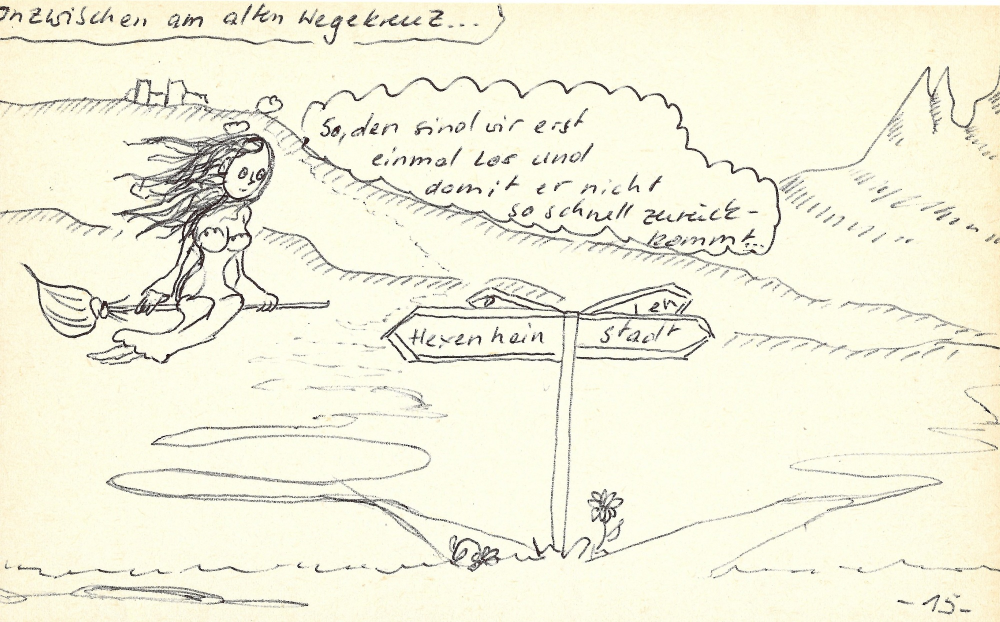 Inzwischen am alten Wegekreuz...
So, den sind wir erst
einmal Los und
damit er nicht
so schnell zurück-
kommt...
Hexenhain
Stadt
-15-